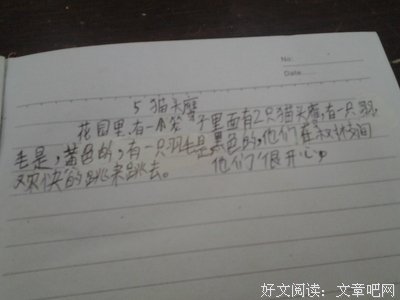 No:
Date:
5 猫头鹰
花园里,有一个笼子里面有2只猫头鹰,有一只羽
毛是,黄色的,有一只羽毛是黑色的,他们在树枝间
欢快的跳来跳去。 他们很开心。
好文阅读:文章吧网